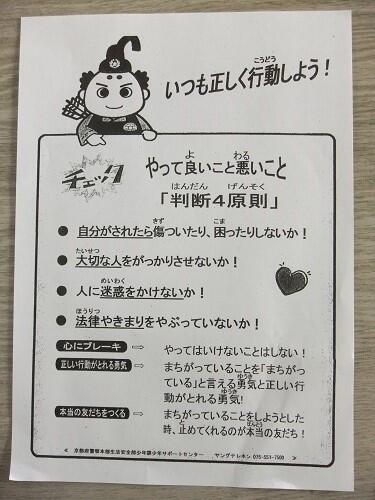 いつも正しく行動しよう！
こうどう
チェック
やって良いこと悪いこと
よ わる
「判断４原則」
はんだん げんそく
● 自分がされたら傷ついたり、困ったりしないか！
きず こま
● 大切な人をがっかりさせないか！
たいせつ
● 人に迷惑をかけないか！
めいわく
● 法律やきまりをやぶっていないか！
ほうりつ
心にブレーキ ⇨ やってはいけないことはしない！
正しい行動がとれる勇気 ⇨ まちがっていることを「まちが
っている」と言える勇気と正しい行
ゆうき
動がとれる勇気！
ゆうき
本当の友だちをつくる ⇨ まちがっていることをしようとした
時、止めてくれるのが本当の友だち！
と ほんとう
≪ 京都府警察本部生活安全部少年課少年サポートセンター ヤングテレホン 075-551-7500 ≫